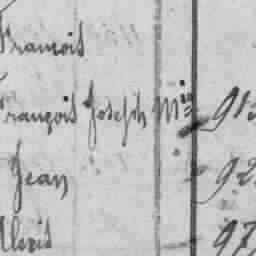 François
François Joseph Min 91
Jean 92
Alexis 97